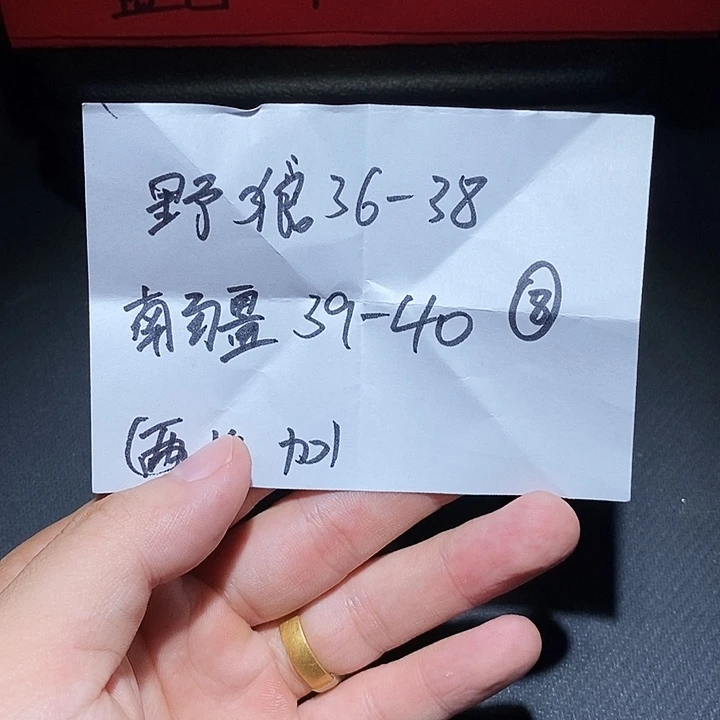 野狼 36-38
南疆 39-40 ⑧
(两 加)